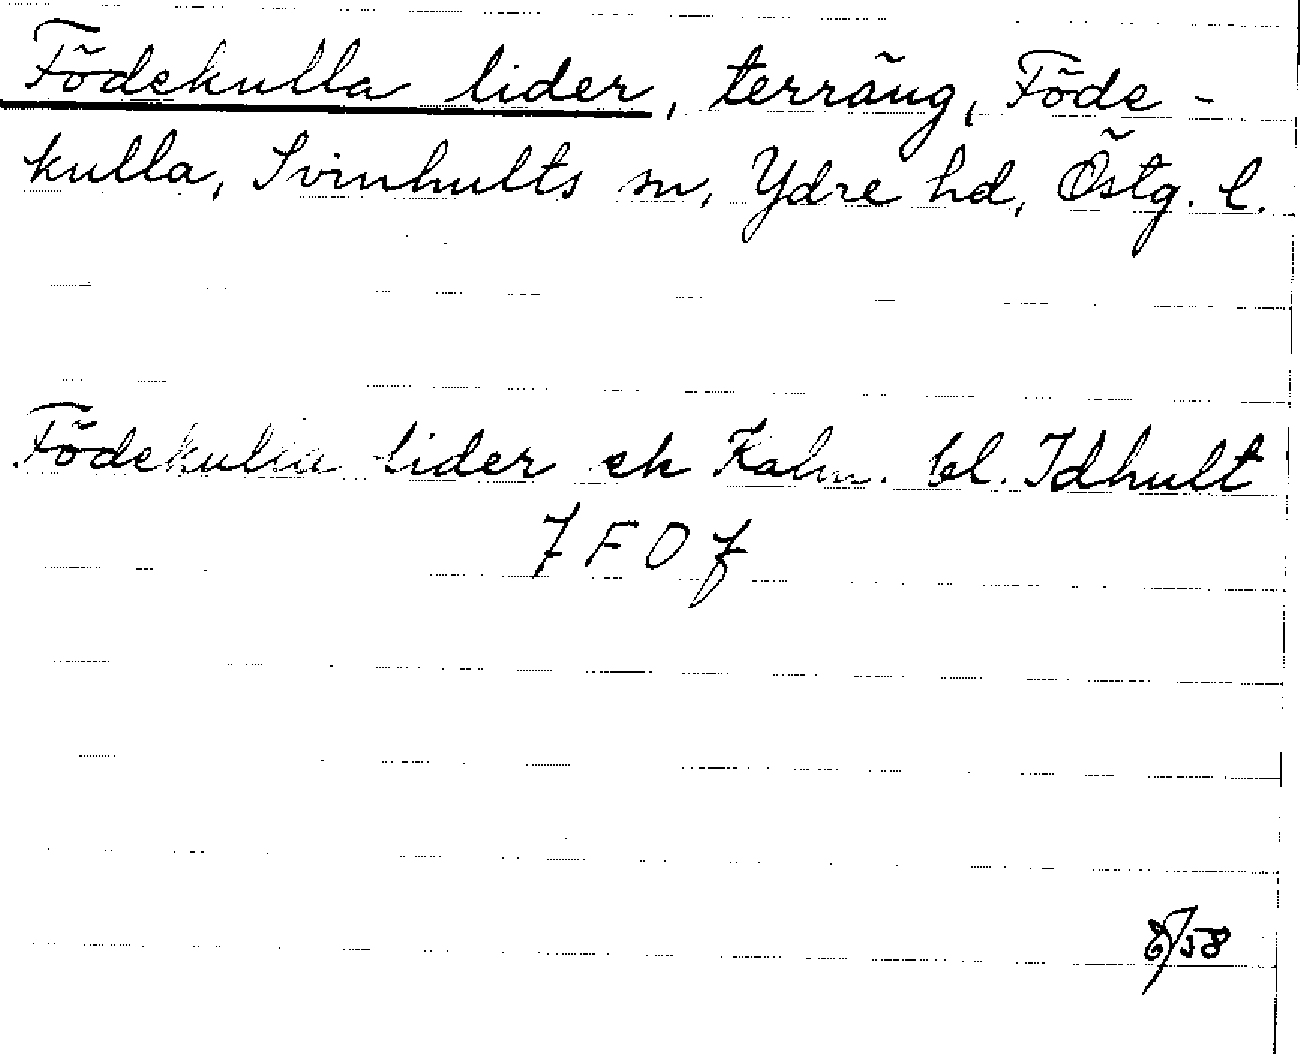 Födekulla lider, terräng, Föde-
kulla, Svinhults sn, Ydre hd, Östg. l.
Födekulla lider ek Kabn. bl. Idhult
7 F 0 f
8/58